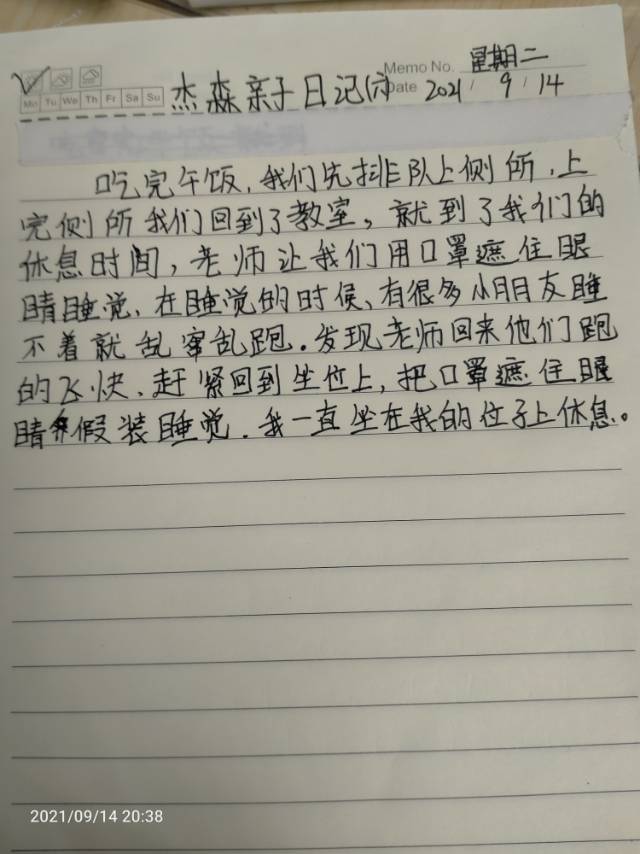 Memo No. 星期二
Mo Tu We Th Fr Sa Su 杰森亲子日记(六) Date 2021 / 9 / 14
吃完午饭,我们先排队上侧所,上
完侧所我们回到了教室,就到了我们的
休息时间,老师让我们用口罩遮住眼
睛睡觉、在睡觉的时候、有很多小朋友睡
不着就乱窜乱跑.发现老师回来他们跑
的飞快、赶紧回到坐位上,把口罩遮住眼
睛假装睡觉.我一直坐在我的位子上休息。
2021/09/14 20:38